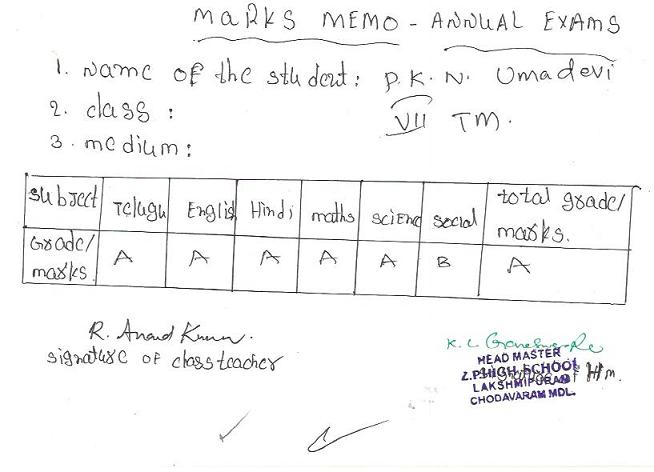 MARKS MEMO - ANNUAL EXAMS
1. Name of the student: P. K. N. Umadevi
2. class : VII TM.
3. medium :
Subject Telugu English Hindi maths science social total grade/
marks.
Grade/ A A A A A B A
marks.
R. Anand Kumar.
signature of class teacher
K. L.
HEAD MASTER
Z.P.HIGH SCHOOL
signature of Hm.
LAKSHMIPURAM
CHODAVARAM MDL.